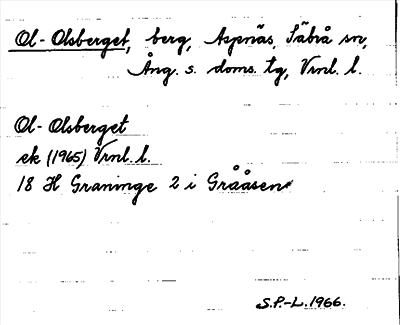 Ol-Olsberget, berg, Aspnäs, Säbrå sn,
Ång. s. doms. tg, Vrnl. l.
Ol-Olsberget
ek (1965) Vrnl. l.
18 H Graninge 2 i Grååsen
S.P.-L. 1966.